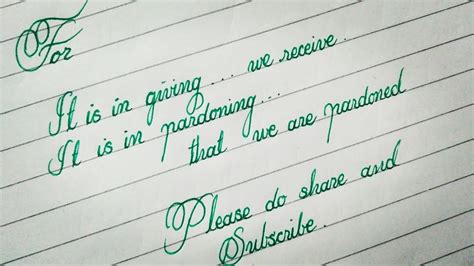 For
It is in giving... we receive.
It is in pardoning...
that we are pardoned
Please do share and
Subscribe.